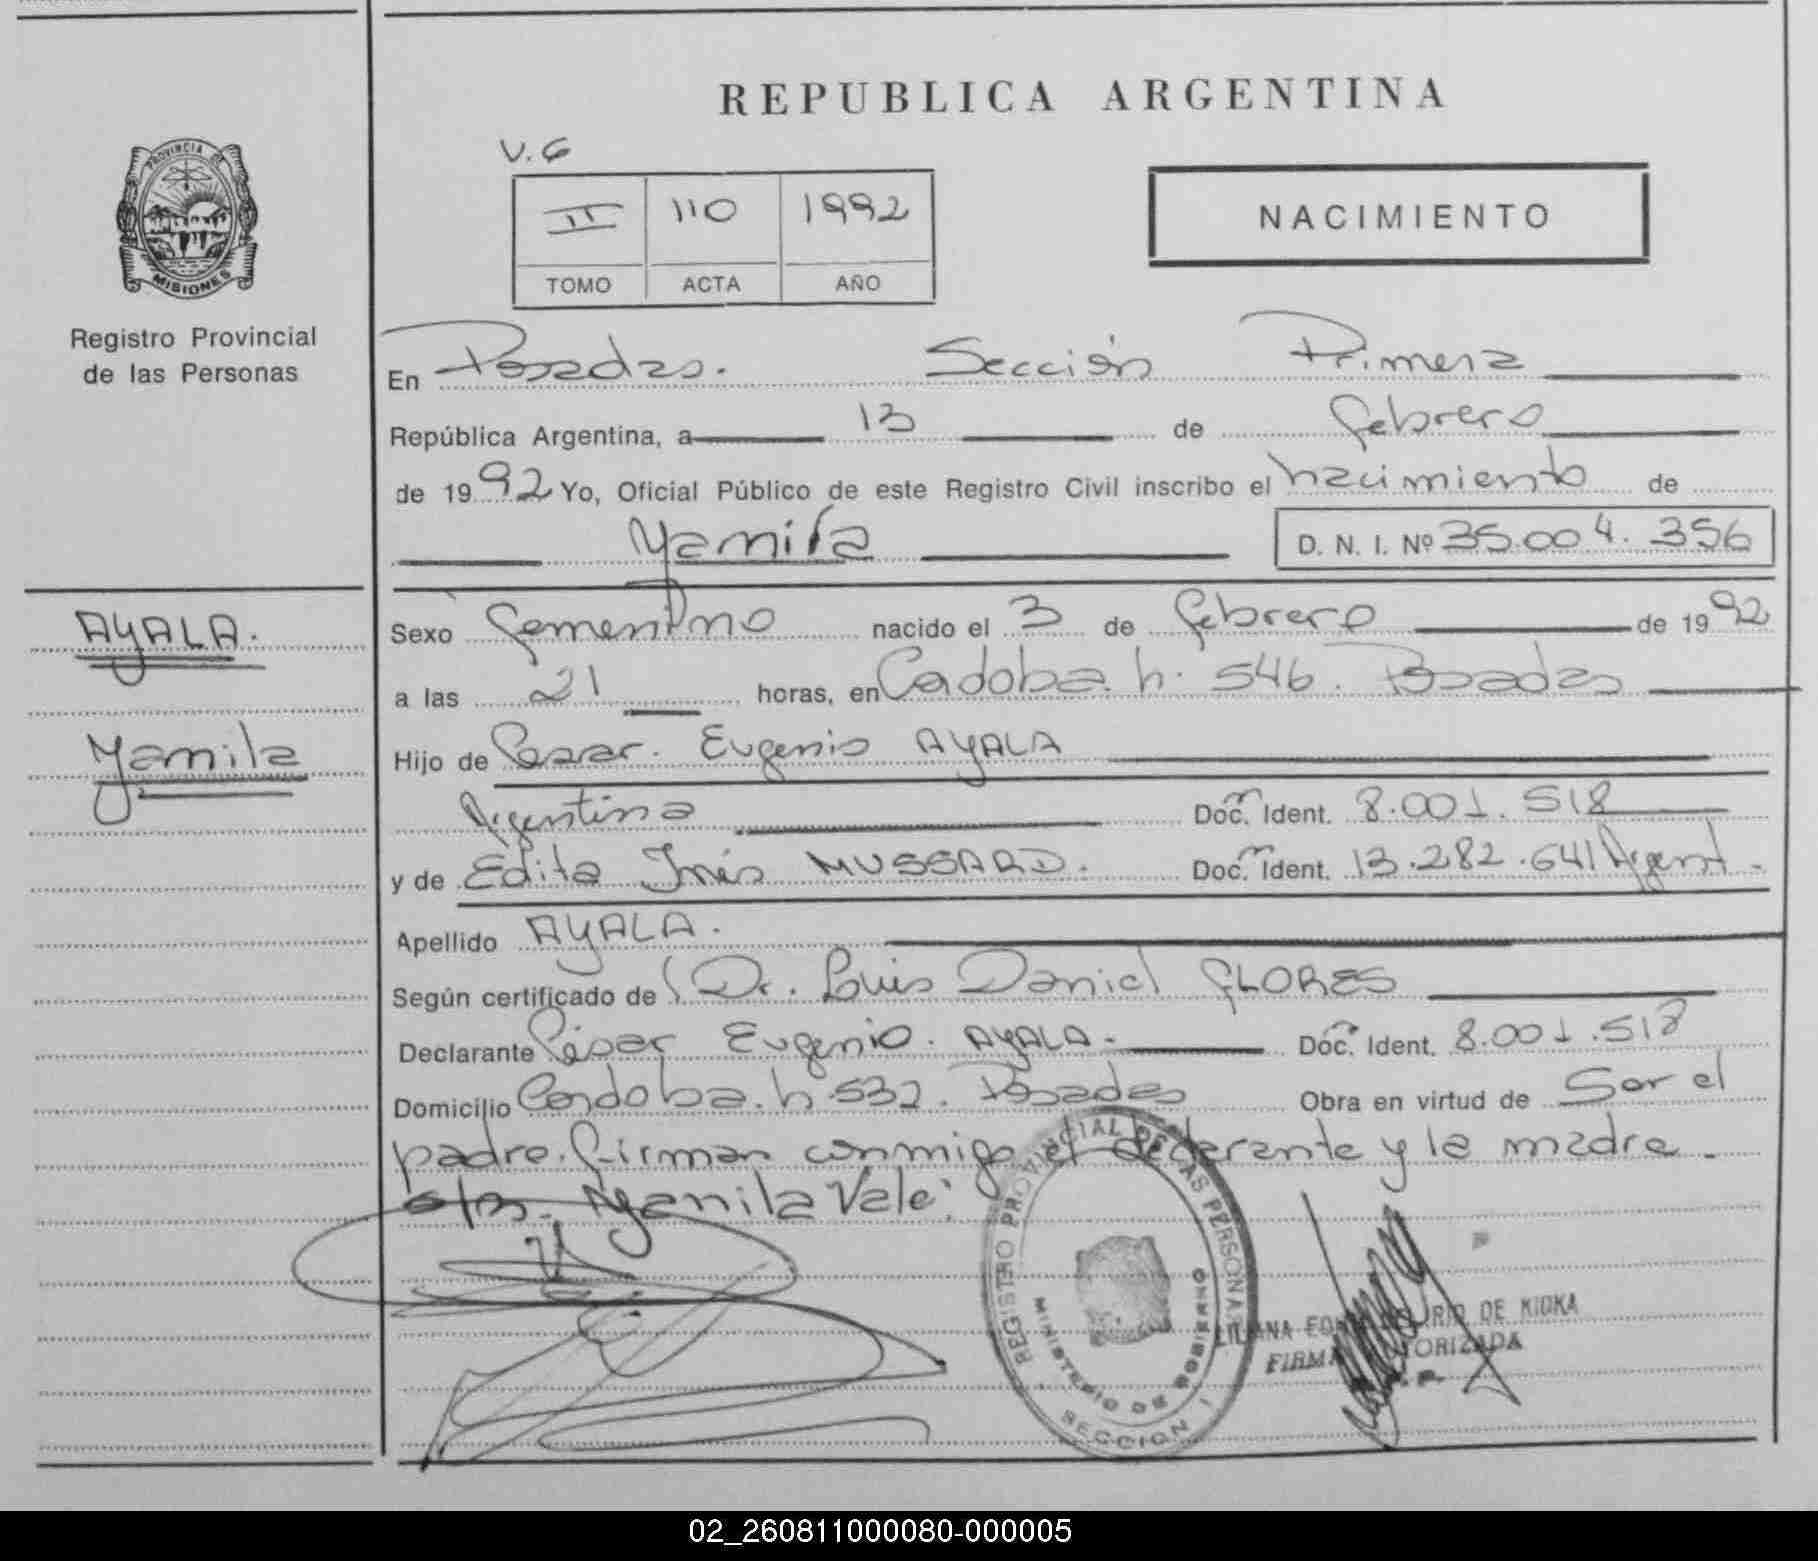 REPUBLICA ARGENTINA
PROVINCIA DE
MISIONES
Registro Provincial
de las Personas
V. 6
II 110 1992
TOMO ACTA AÑO
NACIMIENTO
En Posadas. Sección Primera
República Argentina, a 13 de febrero
de 1992 Yo, Oficial Público de este Registro Civil inscribo el nacimiento de
Yamila D. N. I. Nº 35.004.356
AYALA.
Yamila
Sexo femenino nacido el 3 de febrero de 1992
a las 21 horas, en Cordoba. h. 546. Posadas
Hijo de Cesar. Eugenio AYALA
Argentina Doc. Ident. 8.001.518
y de Edita Inés MUSSARD. Doc. Ident. 13.282.641 Argent.
Apellido AYALA.
Según certificado de Dr. Luis Daniel FLORES
Declarante César Eugenio. AYALA. Doc. Ident. 8.001.518
Domicilio Cordoba. h. 532. Posadas Obra en virtud de Ser el
padre. firman conmigo el declarante y la madre.
Yamila Vale:
REGISTRO PROVINCIAL DE LAS PERSONAS
MINISTERIO DE GOBIERNO
SECCION 1
LILIANA DE KIDKA
FIRMA AUTORIZADA
02_260811000080-000005